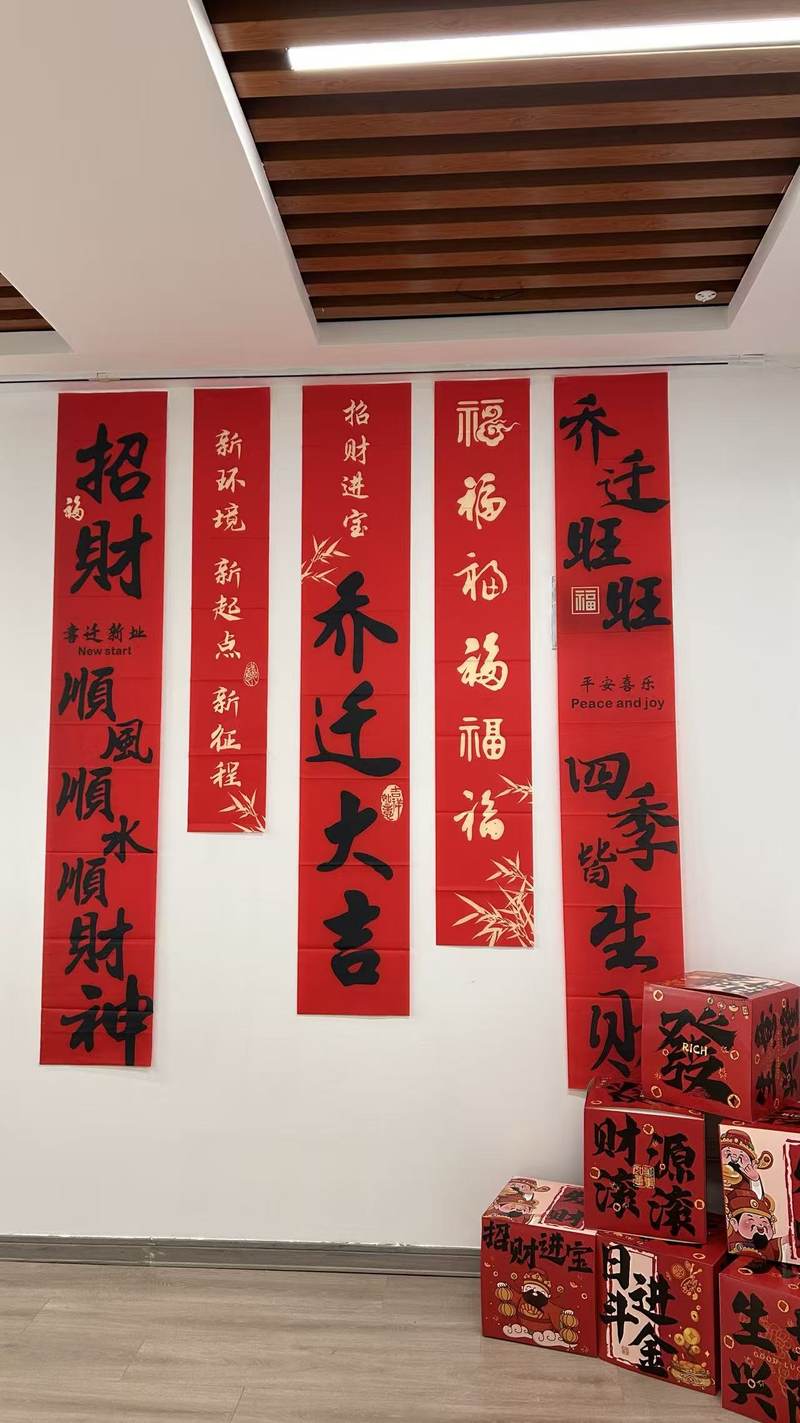 招財
福
喜迁新址
New start
順風
順水
順財神
新环境 新起点 新征程
招财进宝
乔迁大吉
福福福福福福
乔迁
旺旺
福
平安喜乐
Peace and joy
四季
皆生财
發
RICH
财源
滚滚
招财进宝
日进
斗金
生
兴
GOOD LUCK